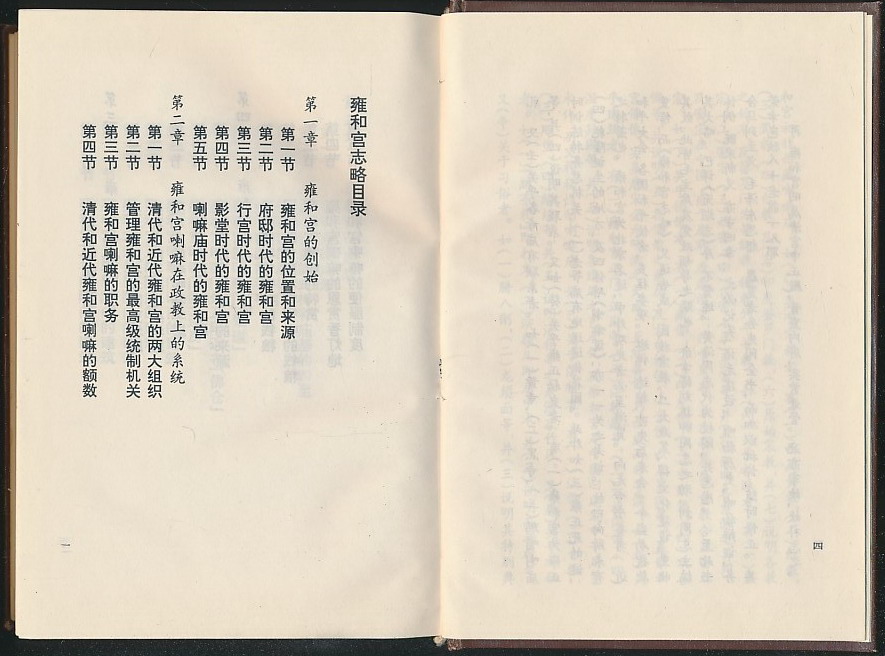 四
雍和宫志略目录
第一章 雍和宫的创始
第一节 雍和宫的位置和来源
第二节 府邸时代的雍和宫
第三节 行宫时代的雍和宫
第四节 影堂时代的雍和宫
第五节 喇嘛庙时代的雍和宫
第二章 雍和宫喇嘛在政教上的系统
第一节 清代和近代雍和宫的两大组织
第二节 管理雍和宫的最高级统制机关
第三节 雍和宫喇嘛的职务
第四节 清代和近代雍和宫喇嘛的额数
一